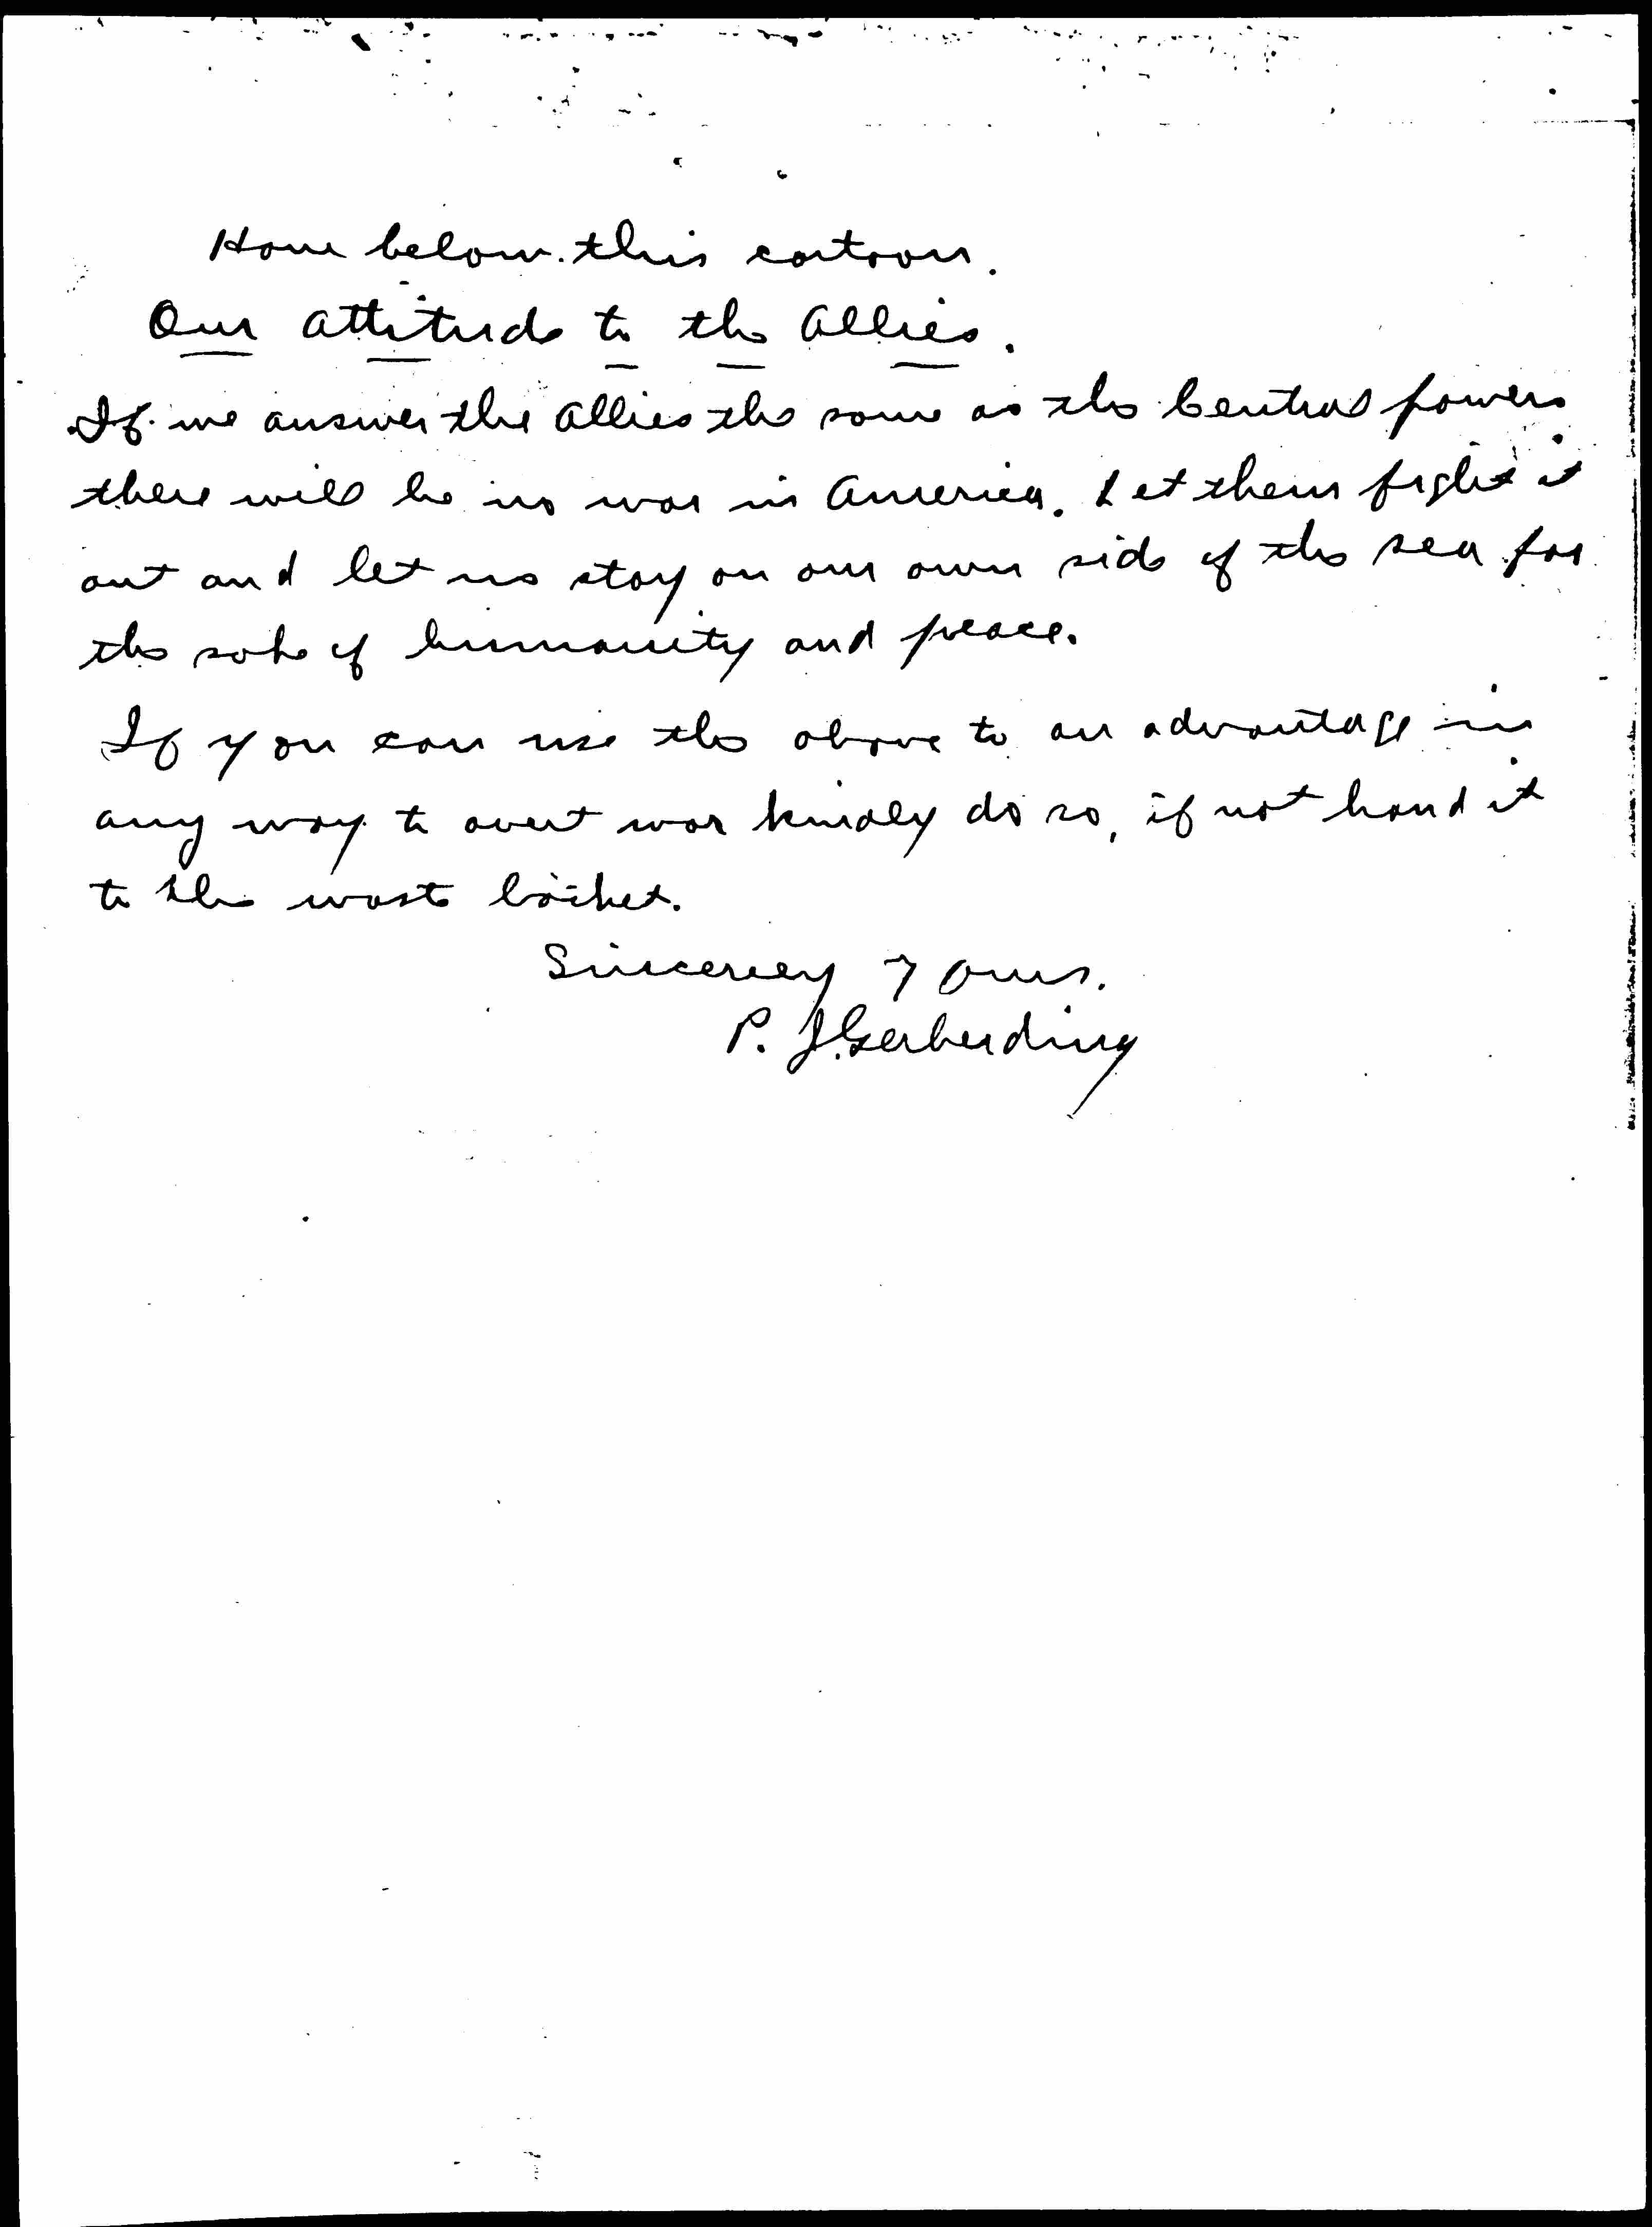 Have below this cartoon.
Our attitude to the Allies.
If we answer the Allies the same as the Central powers
there will be no war in America. Let them fight it
out and let us stay on our own side of the sea for
the sake of humanity and peace.
If you can use the above to an advantage in
any way to avert war kindly do so, if not hand it
to the waste basket.
Sincerely Yours.
P. J. Gerberding